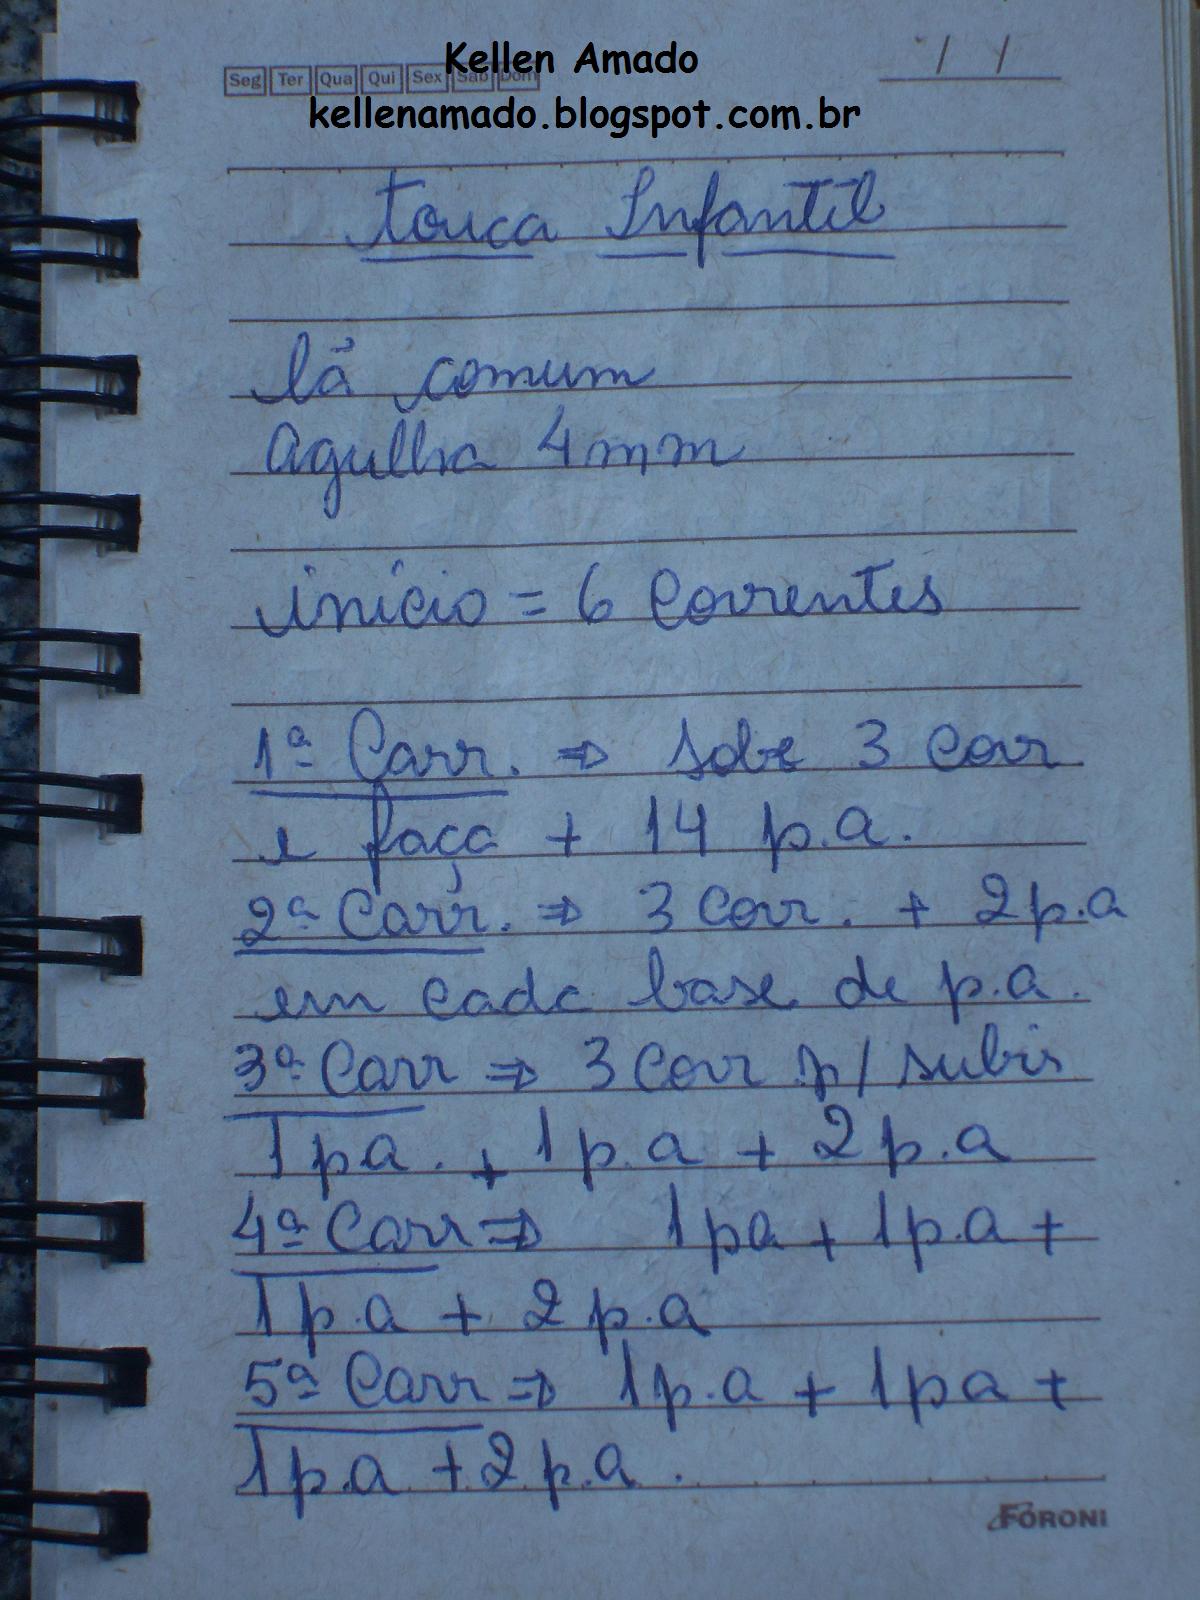 Kellen Amado
Seg Ter Qua Qui Sex Sáb Dom / /
kellenamado.blogspot.com.br
Touca Infantil
lã comum
Agulha 4mm
início = 6 Correntes
1ª Carr. ⇒ sobe 3 corr
e faça + 14 p.a.
2ª Carr. ⇒ 3 corr. + 2 p.a
em cada base de p.a.
3ª Carr ⇒ 3 corr p/ subir
1 pa. + 1 p.a + 2 p.a
4ª Carr ⇒ 1 pa + 1 p.a +
1 p.a + 2 p.a
5ª Carr ⇒ 1 p.a + 1 pa +
1 p.a + 2 p.a.
FORONI